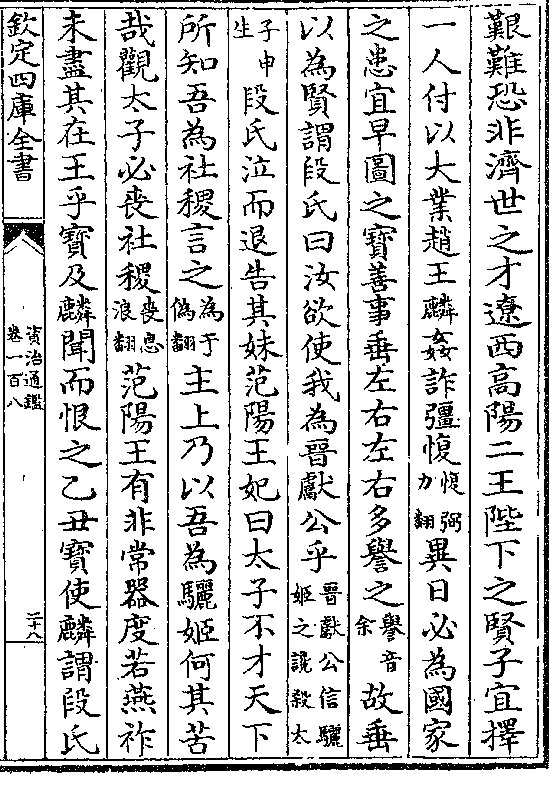 艱難恐非濟世之才遼西高陽二王陛下之賢子宜擇
一人付以大業趙王麟姦詐彊愎愎弼力翻異日必為國家
之患宜早圖之寶善事垂左右左右多譽之譽音余故垂
以為賢謂段氏曰汝欲使我為晉獻公乎晉獻公信驪姬之讒殺太
子申生段氏泣而退告其妹范陽王妃曰太子不才天下
所知吾為社稷言之為于偽翻主上乃以吾為驪姬何其苦
哉觀太子必喪社稷喪息浪翻范陽王有非常器度若燕祚
未盡其在王乎寶及麟聞而恨之乙丑寶使麟謂段氏
欽定四庫全書
資治通鑑
卷一百八
二十八